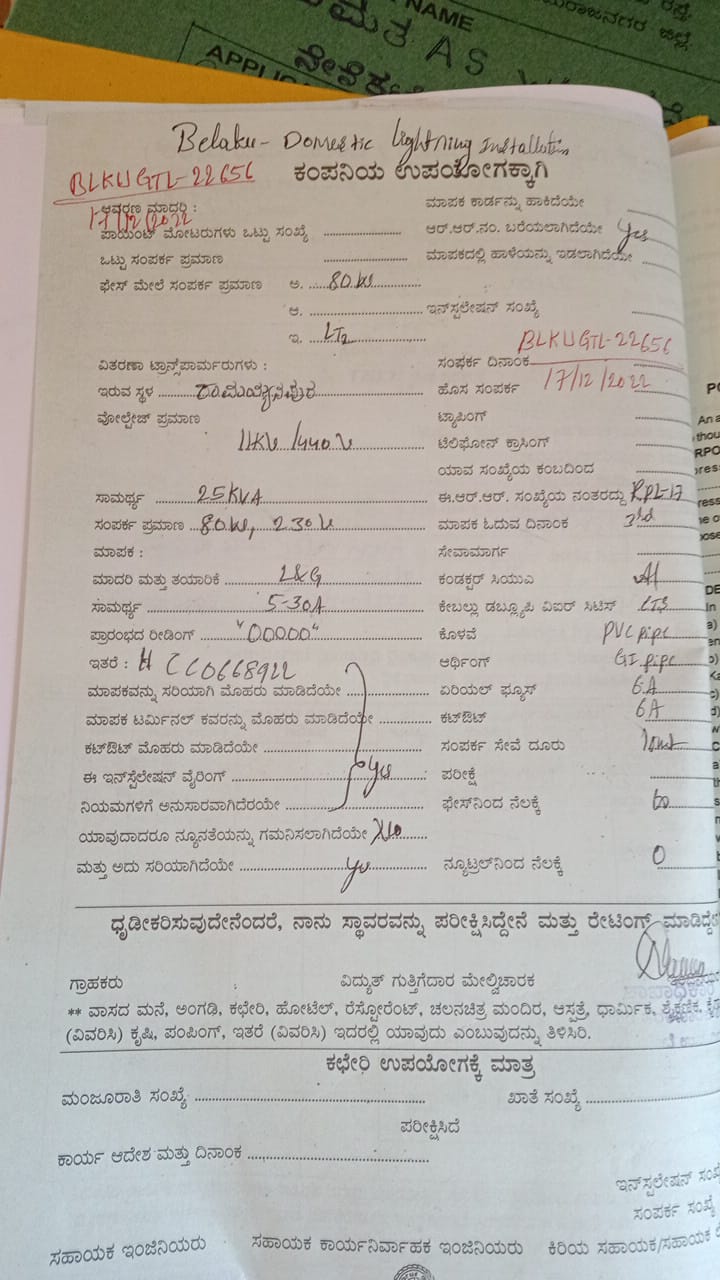 NAME
APPLI
Belaku - Domestic Lightning Installation
BLKUGTL-22656
ಕಂಪನಿಯ ಉಪಯೋಗಕ್ಕಾಗಿ
17/12/2022
ಆವರಣ ಮಾದರಿ :
ಮಾಪಕ ಕಾರ್ಡನ್ನು ಹಾಕಿದೆಯೇ
ಪಾಯಿಂಟ್ ಮೋಟರುಗಳು ಒಟ್ಟು ಸಂಖ್ಯೆ ಆರ್.ಆರ್.ನಂ. ಬರೆಯಲಾಗಿದೆಯೇ Yes
ಒಟ್ಟು ಸಂಪರ್ಕ ಪ್ರಮಾಣ ಮಾಪಕದಲ್ಲಿ ಹಾಳೆಯನ್ನು ಇಡಲಾಗಿದೆಯೇ
ಫೇಸ್ ಮೇಲೆ ಸಂಪರ್ಕ ಪ್ರಮಾಣ ಅ. 80W
ಆ. ಇನ್‌ಸ್ಪಲೇಷನ್ ಸಂಖ್ಯೆ
ಇ. LT2 BLKUGTL-22656
ವಿತರಣಾ ಟ್ರಾನ್ಸ್‌ಪಾರ್ಮರುಗಳು : ಸಂಪರ್ಕ ದಿನಾಂಕ
ಇರುವ ಸ್ಥಳ ಹೊಸ ಸಂಪರ್ಕ 17/12/2022
ವೋಲ್ಟೇಜ್ ಪ್ರಮಾಣ ಟ್ಯಾಪಿಂಗ್
11KV/440V ಟೆಲಿಫೋನ್ ಕ್ರಾಸಿಂಗ್
ಯಾವ ಸಂಖ್ಯೆಯ ಕಂಬದಿಂದ
ಸಾಮರ್ಥ್ಯ 25KVA ಈ.ಆರ್.ಆರ್. ಸಂಖ್ಯೆಯ ನಂತರದ್ದು RPL-17
ಸಂಪರ್ಕ ಪ್ರಮಾಣ 80W, 230V ಮಾಪಕ ಓದುವ ದಿನಾಂಕ 3rd
ಮಾಪಕ : ಸೇವಾಮಾರ್ಗ
ಮಾದರಿ ಮತ್ತು ತಯಾರಿಕೆ L&G ಕಂಡಕ್ಟರ್ ಸಿಯುಎ Al
ಸಾಮರ್ಥ್ಯ 5-30A ಕೇಬಲ್ಲು ಡಬ್ಲ್ಯೂಪಿ ವಿಐರ್ ಸಿಟಿಸ್
ಪ್ರಾರಂಭದ ರೀಡಿಂಗ್ "00000" ಕೊಳವೆ PVC pipe
ಇತರೆ : CC0668922 ಆರ್ಥಿಂಗ್ GI pipe
ಮಾಪಕವನ್ನು ಸರಿಯಾಗಿ ಮೊಹರು ಮಾಡಿದೆಯೇ ಏರಿಯಲ್ ಫ್ಯೂಸ್ 6A
ಮಾಪಕ ಟರ್ಮಿನಲ್ ಕವರನ್ನು ಮೊಹರು ಮಾಡಿದೆಯೇ ಕಟ್‌ಔಟ್ 6A
ಕಟ್‌ಔಟ್ ಮೊಹರು ಮಾಡಿದೆಯೇ ಸಂಪರ್ಕ ಸೇವೆ ದೂರು 10mt
ಈ ಇನ್‌ಸ್ಟೆಲೇಷನ್ ವೈರಿಂಗ್ Yes ಪರೀಕ್ಷೆ
ನಿಯಮಗಳಿಗೆ ಅನುಸಾರವಾಗಿದೆರಯೇ ಫೇಸ್‌ನಿಂದ ನೆಲಕ್ಕೆ
ಯಾವುದಾದರೂ ನ್ಯೂನತೆಯನ್ನು ಗಮನಿಸಲಾಗಿದೆಯೇ No
ಮತ್ತು ಅದು ಸರಿಯಾಗಿದೆಯೇ Yes ನ್ಯೂಟ್ರಲ್‌ನಿಂದ ನೆಲಕ್ಕೆ 0
ಧೃಡೀಕರಿಸುವುದೇನೆಂದರೆ, ನಾನು ಸ್ಥಾವರವನ್ನು ಪರೀಕ್ಷಿಸಿದ್ದೇನೆ ಮತ್ತು ರೇಟಿಂಗ್ ಮಾಡಿದ್ದೇ
ಗ್ರಾಹಕರು ವಿದ್ಯುತ್ ಗುತ್ತಿಗೆದಾರ ಮೇಲ್ವಿಚಾರಕ
** ವಾಸದ ಮನೆ, ಅಂಗಡಿ, ಕಛೇರಿ, ಹೋಟೆಲ್, ರೆಸ್ಟೋರೆಂಟ್, ಚಲನಚಿತ್ರ ಮಂದಿರ, ಆಸ್ಪತ್ರೆ, ಧಾರ್ಮಿಕ, ಶೈಕ್ಷಣಿಕ,
(ವಿವರಿಸಿ) ಕೃಷಿ, ಪಂಪಿಂಗ್, ಇತರೆ (ವಿವರಿಸಿ) ಇದರಲ್ಲಿ ಯಾವುದು ಎಂಬುವುದನ್ನು ತಿಳಿಸಿರಿ.
ಕಛೇರಿ ಉಪಯೋಗಕ್ಕೆ ಮಾತ್ರ
ಮಂಜೂರಾತಿ ಸಂಖ್ಯೆ ಖಾತೆ ಸಂಖ್ಯೆ
ಪರೀಕ್ಷಿಸಿದೆ
ಕಾರ್ಯ ಆದೇಶ ಮತ್ತು ದಿನಾಂಕ
ಇನ್‌ಸ್ಪಲೇಷನ್ ಸಂಖ್ಯೆ
ಸಂಪರ್ಕ ಸಂಖ್ಯೆ
ಸಹಾಯಕ ಇಂಜಿನಿಯರು ಸಹಾಯಕ ಕಾರ್ಯನಿರ್ವಾಹಕ ಇಂಜಿನಿಯರು ಕಿರಿಯ ಸಹಾಯಕ/ಸಹಾಯಕ